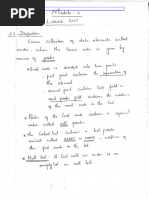 Module - 2
LINKED LIST
2.1 Definition
Linear collection of data elements called
nodes, where the linear order is given by
means of pointers
Each node is divided into two parts
- first part contains the information of
the element
- second part contains link field /
next pointer field contains the address
of the next node in the list
Pointer of the last node contains a special
value called null pointer
The linked list contains a list pointer
variable called START or NAME - address of
the first node in the list
Null list: A list with no nodes is an
empty list or null list